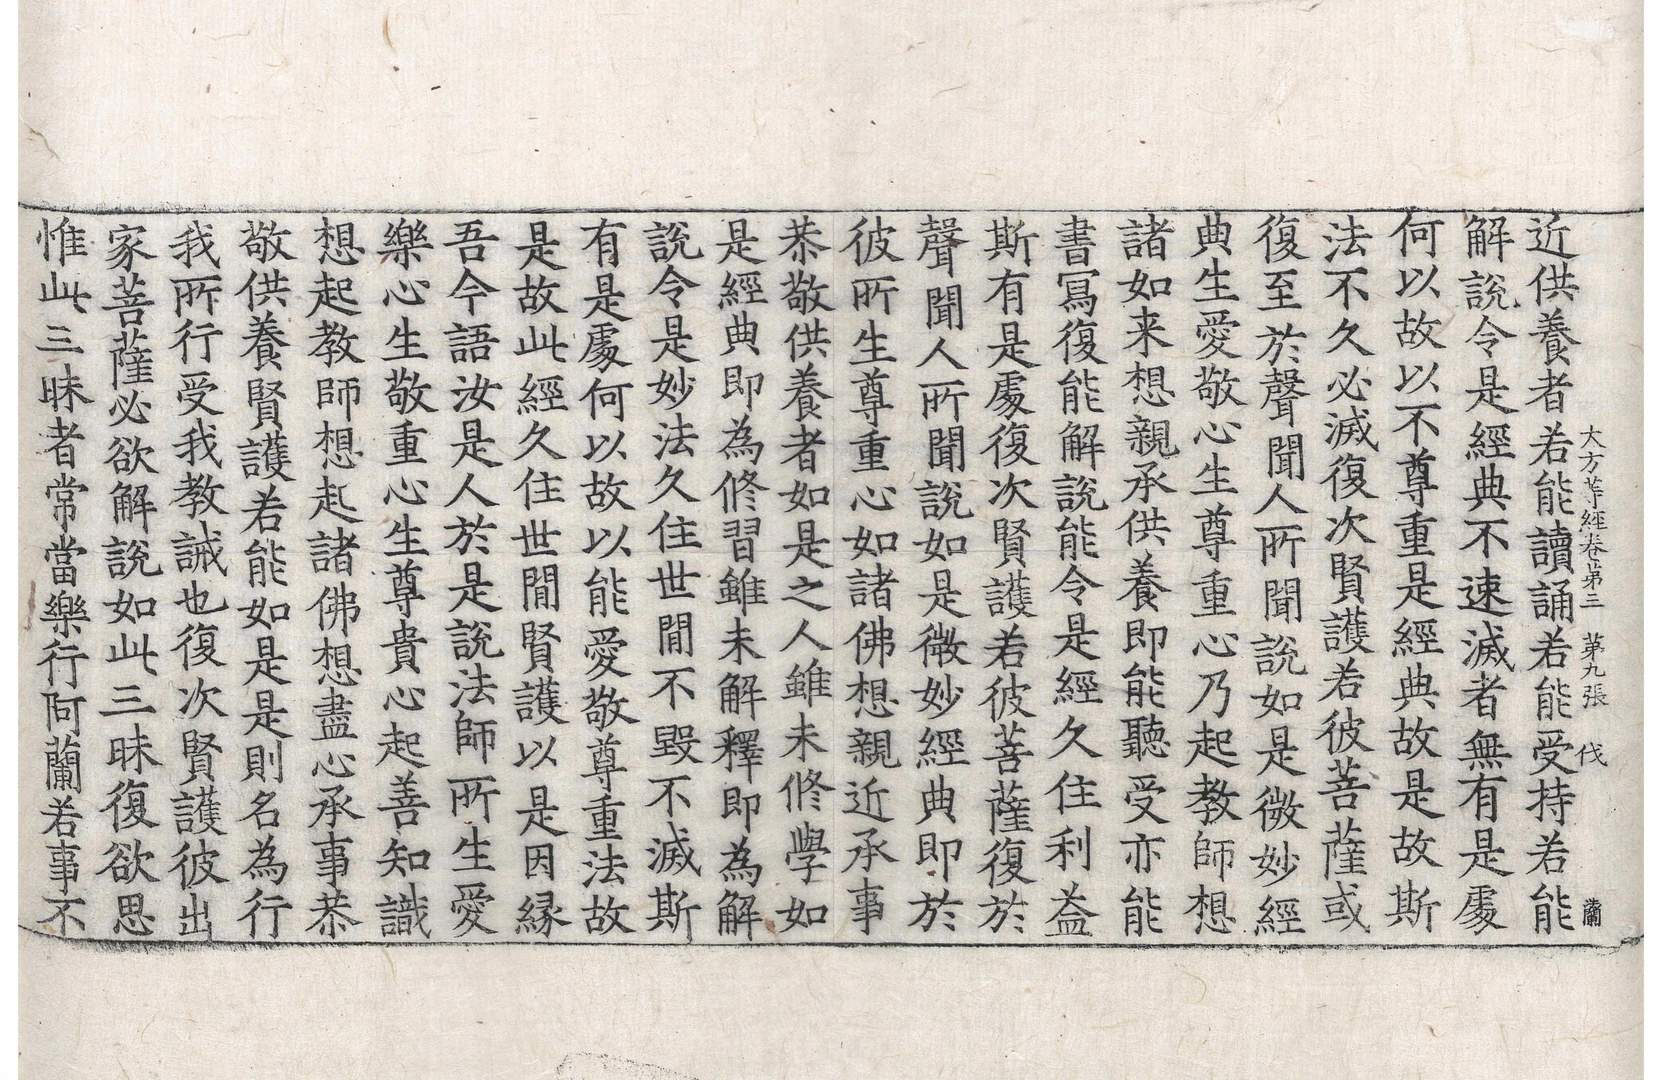 大方等経卷第三　第九張　伐　蘭
近供養者若能讀誦若能受持若能
解說令是經典不速滅者無有是處
何以故以不尊重是經典故是故斯
法不久必滅復次賢護若彼菩薩或
復至於聲聞人所聞說如是微妙經
典生愛敬心生尊重心乃起教師想
諸如来想親承供養即能聽受亦能
書寫復能解說能令是經久住利益
斯有是處復次賢護若彼菩薩復於
聲聞人所聞說如是微妙經典即於
彼所生尊重心如諸佛想親近承事
恭敬供養者如是之人雖未修學如
是經典即為修習雖未解釋即為解
說令是妙法久住世間不毀不滅斯
有是處何以故以能愛敬尊重法故
是故此經久住世間賢護以是因緣
吾今語汝是人於是說法師所生愛
樂心生敬重心生尊貴心起善知識
想起教師想起諸佛想盡心承事恭
敬供養賢護若能如是是則名為行
我所行受我教誡也復次賢護彼出
家菩薩必欲解說如此三昧復欲思
惟此三昧者常當樂行阿蘭若事不